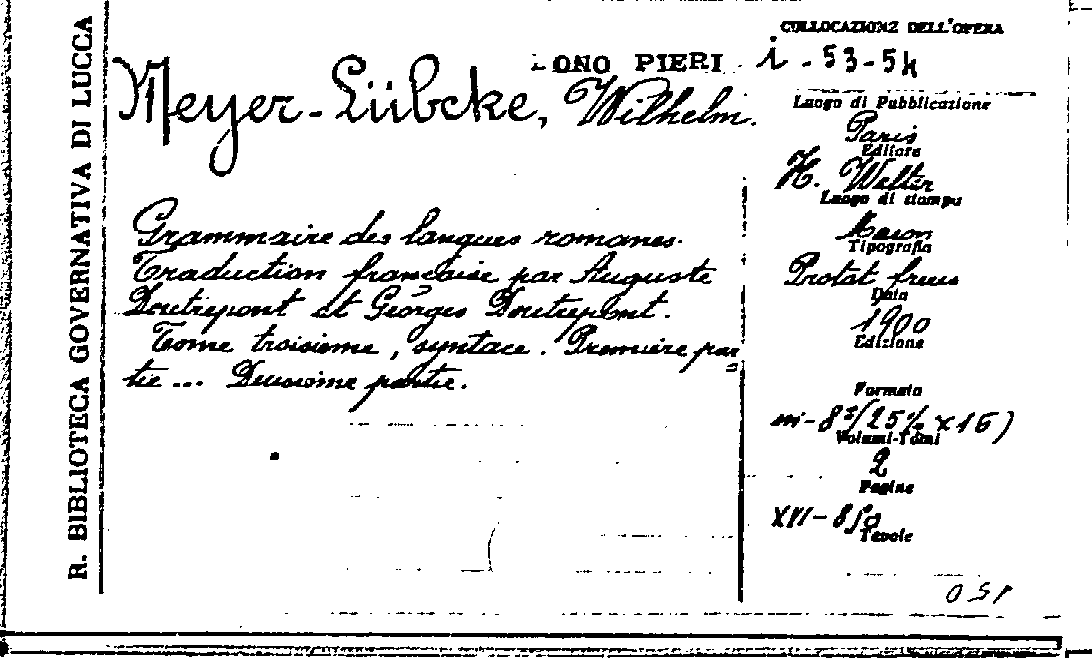 R. BIBLIOTECA GOVERNATIVA DI LUCCA
ONO PIERI
Meyer-Lübcke, Wilhelm.
Grammaire des langues romanes.
Traduction française par Auguste
Doutrepont et Georges Doutrepont.
Tome troisième, syntaxe. Première par=
tie... Deuxième partie.
COLLOCAZIONE DELL'OPERA
i - 53-54
Luogo di Pubblicazione
Paris
Editore
H. Welter
Luogo di stampa
Macon
Tipografia
Protat frères
Data
1900
Edizione
Formato
in-8° (25½ x 16)
Volumi-Tomi
2
Pagine
XVI - 850
Tavole